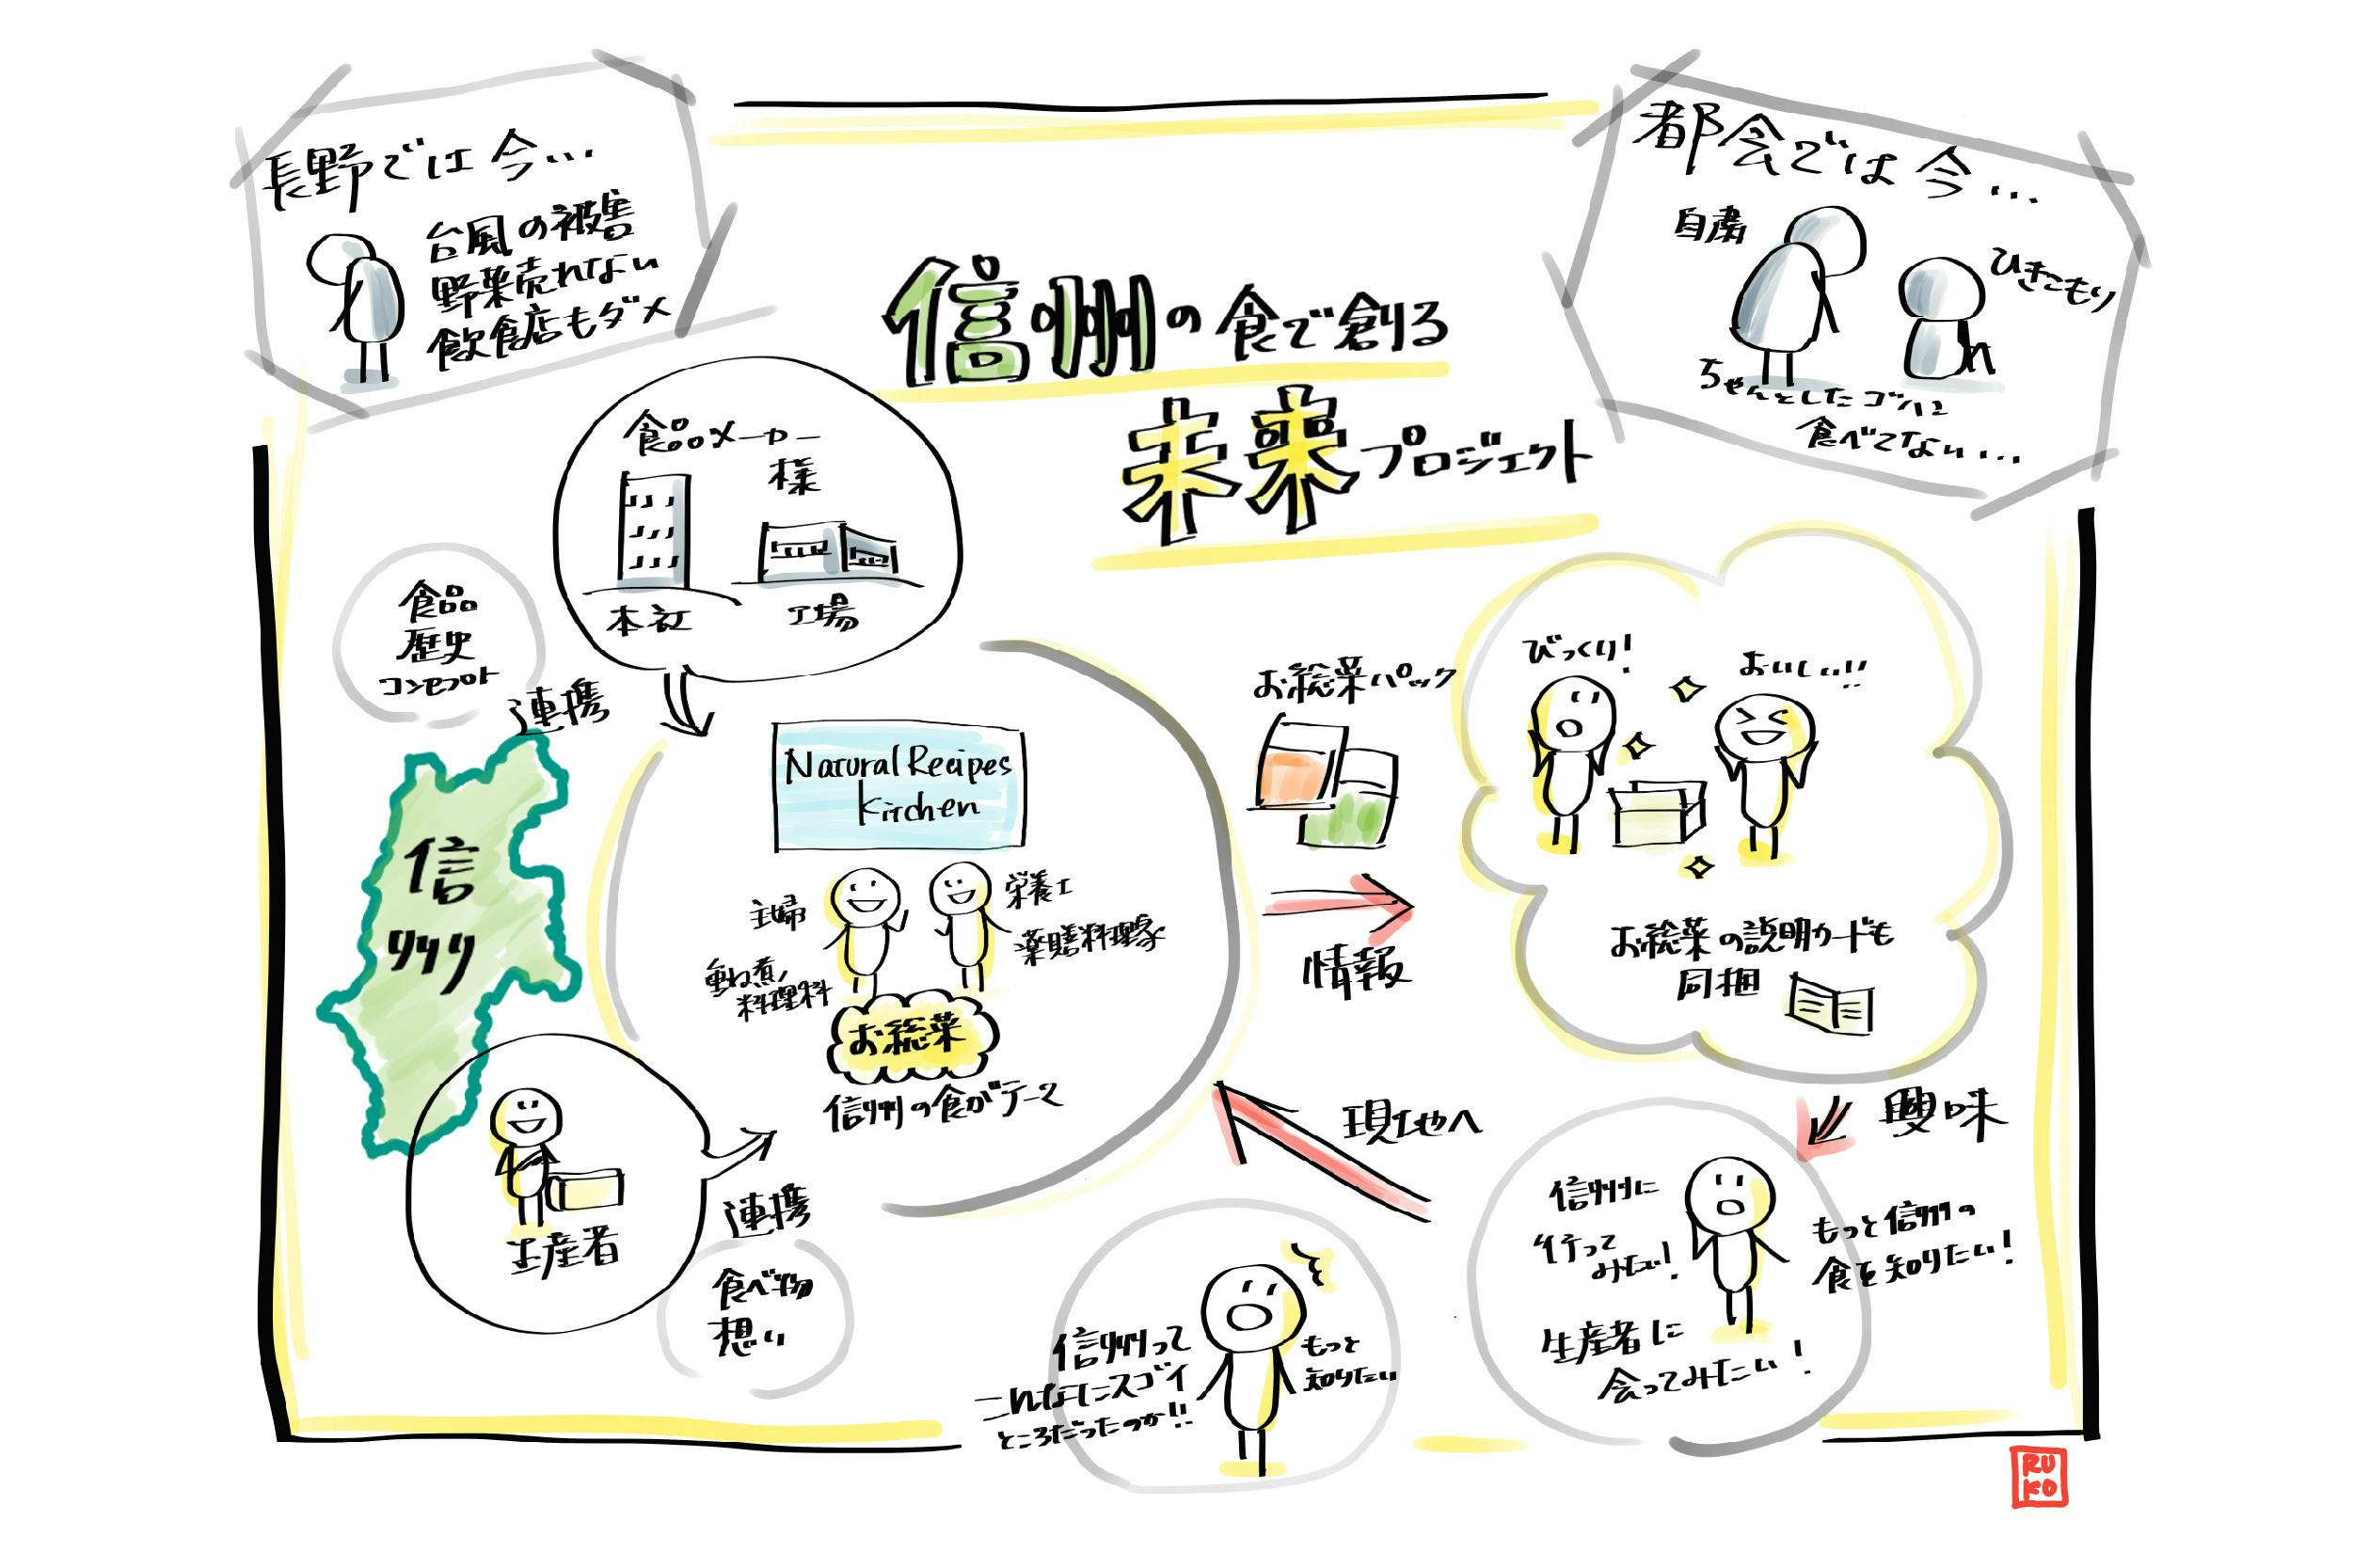 長野では今…
台風の被害
野菜売れない
飲食店もダメ
都会では今…
自粛
ひきこもり
ちゃんとしたゴハン
食べてない…
信州の食で創る
未来プロジェクト
食品メーカー
様
本社
工場
食品
歴史
コンセプト
連携
信
州
Natural Recipes
Kitchen
主婦
重ね煮
料理科
栄養士
薬膳料理家
お総菜
信州の食がテーマ
生産者
連携
食べ物
想い
お総菜パック
情報
びっくり!
おいしい!!
お総菜の説明カードも
同梱
興味
信州に
行って
みたい!
もっと信州の
食を知りたい!
生産者に
会ってみたい!
現地へ
信州って
こんなにスゴイ
ところだったのか!!
もっと
知りたい
RU
KO